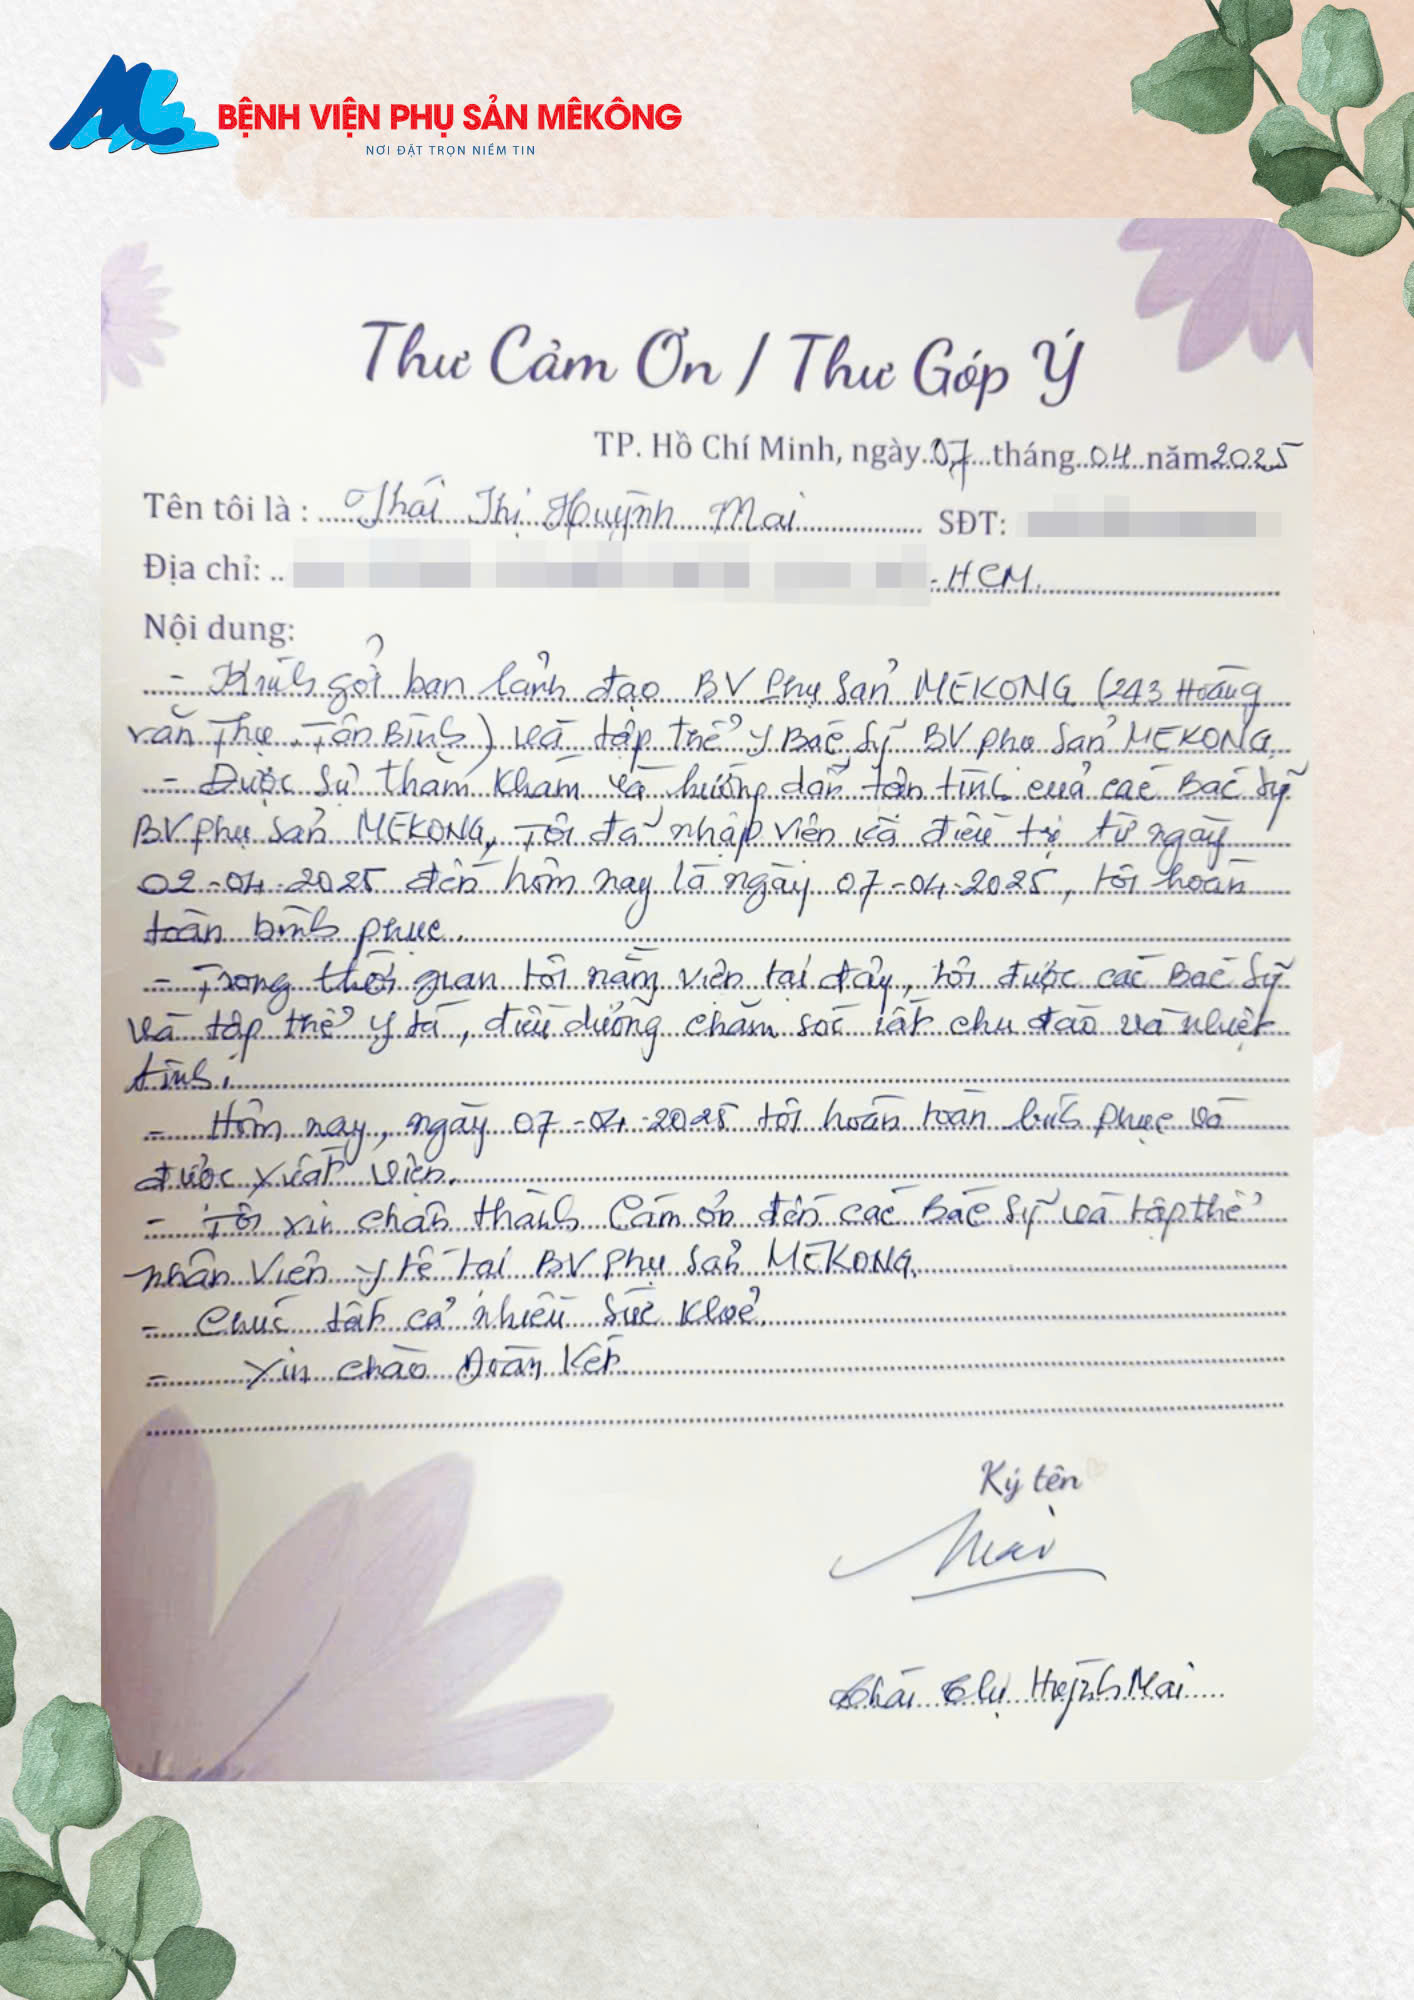 BỆNH VIỆN PHỤ SẢN MÊKÔNG
NƠI ĐẶT TRỌN NIỀM TIN
Thư Cảm Ơn / Thư Góp Ý
TP. Hồ Chí Minh, ngày 07 tháng 04 năm 2025
Tên tôi là : Thái Thị Huỳnh Mai SĐT:
Địa chỉ: - HCM.
Nội dung:
- Kính gởi ban lảnh đạo BV Phụ Sản MEKONG (243 Hoàng
văn Thụ, Tân Bình) và tập thể y Bác Sỹ BV phụ Sản MEKONG
- Được Sự thăm khám và hướng dẫn tận tình của các Bác Sỹ
BV phụ Sản MEKONG, Tôi đã nhập viện và điều trị từ ngày
02-04-2025 đến hôm nay là ngày 07-04-2025, tôi hoàn
toàn bình phục.
- Trong thời gian tôi nằm viện tại đây, tôi được các Bác Sỹ
và tập thể y tá, điều dưỡng chăm sóc rất chu đáo và nhiệt
tình.
- Hôm nay, ngày 07-04-2025 tôi hoàn toàn bình phục và
được xuất viện.
- Tôi xin chân thành Cám ơn đến các Bác Sỹ và tập thể
nhân Viên y tế tại BV phụ Sản MEKONG.
- Chúc tất cả nhiều Sức Khoẻ.
- Xin chào Đoàn Kết
Ký tên
Mai
Thái Thị Huỳnh Mai